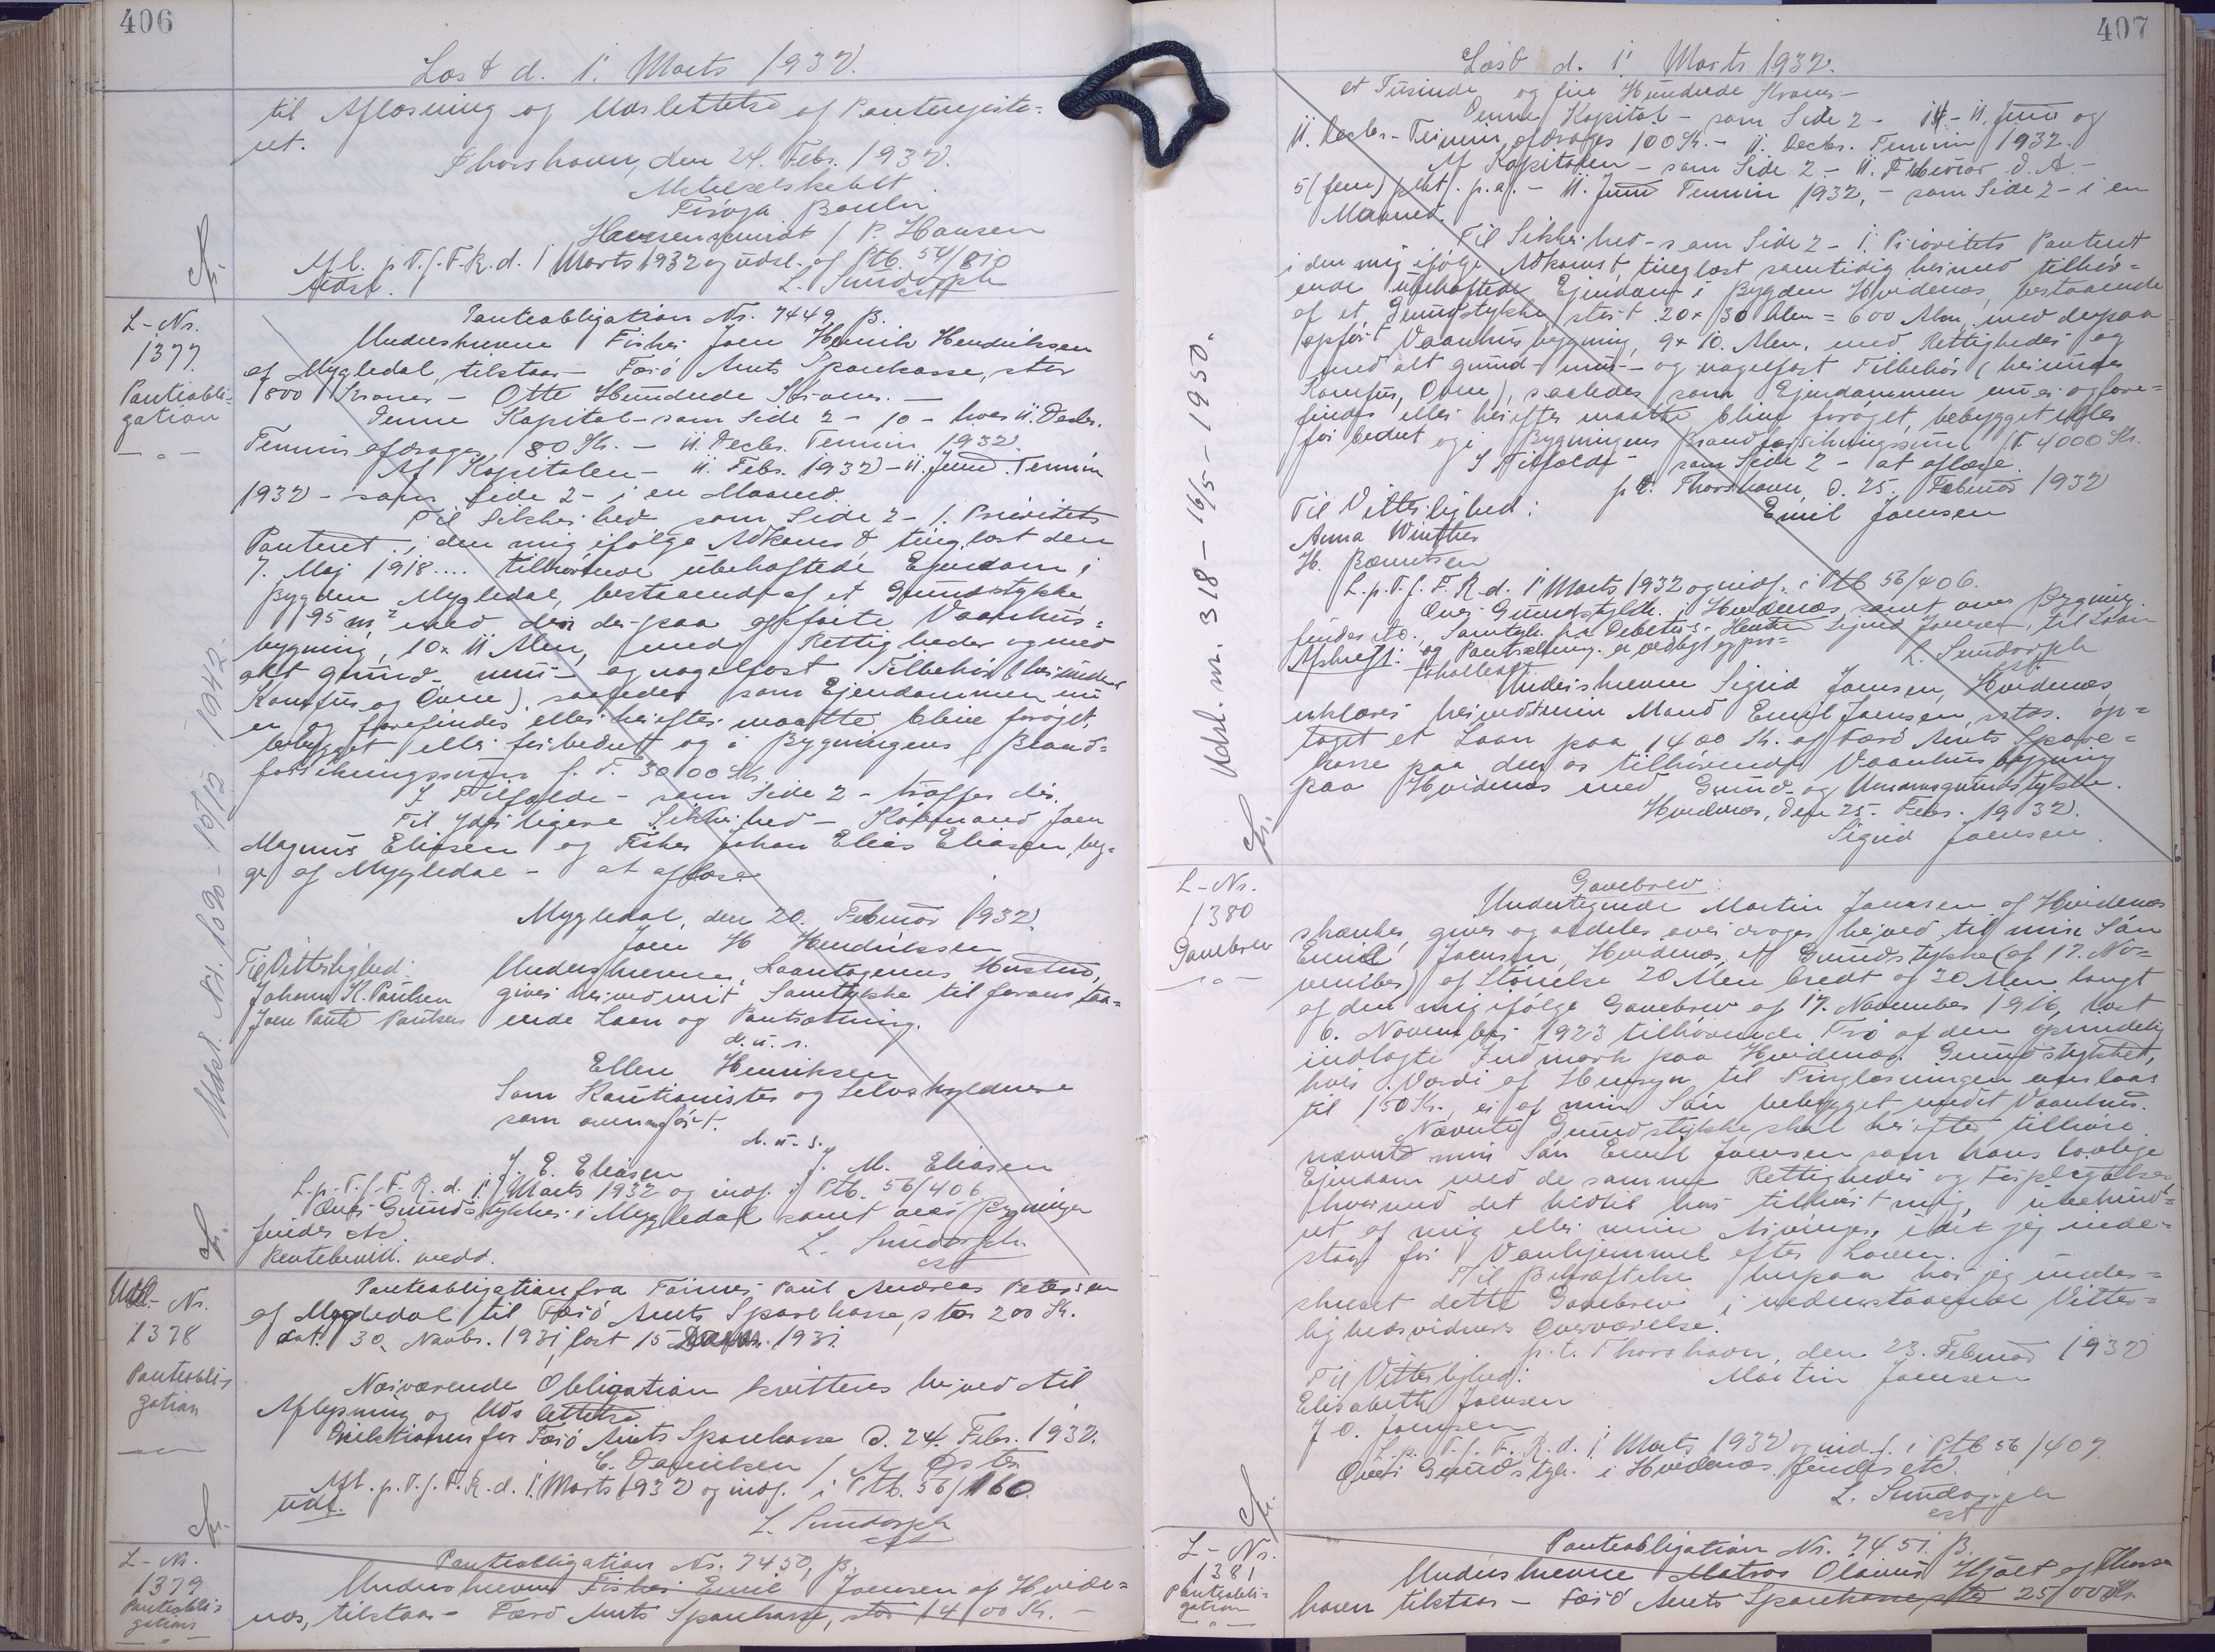 406
Læst d. 1' Marts 1932.
til Aflæsning og Udslettelse af Panteregiste-
ret.
Thorshavn, den 24. Febr. 1932.
Aktieselskabet
Føroya Banki
/ P. Hansen
Afl. p. T. f. F. R. d. 1' Marts 1932 og udsl. af Ptb. 54/810
Udsl. L. Sundorph
cst
L-Nr.
1377
Panteobli-
gation
Udsl. Nr. 1690 - 16/12. 1942.
Panteobligation Nr. 7449 B.
Underskrevne Fisker Joen Henrik Hendriksen
af Mygledal, tilstaar - Færø Amts Sparekasse, stor
800 Kroner - Otte Hundrede Kroner. -
Denne Kapital - som Side 2 - 10 - hver 11. Decbr.
Termin afdrages 80 Kr. - 11. Decbr. Termin 1932.
Af Kapitalen - 11. Febr. 1932 - 11. Juni Termin
1932 - som Side 2 - i en Maaned.
Til Sikkerhed som Side 2 - 1. Prioritets
Panteret i den mig ifølge Adkomst, tinglæst den
7. Maj 1918 .... tilhørende ubehæftede Ejendom i
Bygden Mygledal, bestaaende af et Grundstykke
95 m² med den der-paa opførte Vaanhus-
bygning, 10 x 11 Alen, med Rettigheder og med
alt grund- mur- og nagelfast Tilbehør (herunder
Komfur og Ovne), saaledes som Ejendommen nu
er og forefindes eller herefter maatte blive forøget,
bebygget eller forbedret og i Bygningens Brand-
forsikringssum p. t. 3000 Kr.
I Tilfælde - som Side 2 - træffes der.
Til yderligere Sikkerhed - Købmand Joen
Magnus Eliasen og Fisker Johan Elias Eliasen, beg-
ge af Mygledal - at aflæse
Mygledal, den 20. Februar 1932.
Joen H Hendriksen
Til Vitterlighed:
Johann K. Poulsen
Joen Pauli Poulsen
Underskrevne, Laantagerens Hustru,
giver herved mit Samtykke til foranstaa-
ende Laan og Pantsætning.
d. u. s.
Ellen Henriksen
Som Kautionister og Selvskyldnere
som ovenanført.
d. u. s.
J. E. Eliasen J. M. Eliasen
L. p. T. f. F. R. d. 1' Marts 1932 og indf. i Ptb. 56/406
Over Grundstykker i Mygledal samt over Bygninger
findes etc.
Rentebevill. vedd. L. Sundorph
cst
Udsl.
L-Nr.
1378
Panteobli-
gation
Panteobligation fra Former Paul Andreas Petersen
af Mygledal til Færø Amts Sparekasse, stor 200 Kr.
dat. 30. Novbr. 1931, læst 15 1931.
Nærværende Obligation kvitteres herved til
Aflysning og Udslettelse
Direktionen for Færø Amts Sparekasse d. 24. Febr. 1932.
C. Danielsen / A. Øster
Afl. p. T. f. F. R. d. 1' Marts 1932 og indf. i Ptb. 56/160
Udsl.
L. Sundorph
cst
L-Nr.
1379
Panteobli-
gation
Panteobligation Nr. 7450, B.
Underskrevne Fisker Emil Joensen af Hvide-
næs, tilstaar - Færø Amts Sparekasse, stor 1400 Kr. -
407
Læst d. 1' Marts 1932.
et Tusinde og fire Hundrede Kroner -
Denne Kapital - som Side 2 - 14 - 11. Juni og
11. Decbr. - Termin afdrages 100 Kr. - 11. Decbr. Termin 1932.
Af Kapitalen - som Side 2 - 11. Februar d. A. -
5 (fem) pCt. p. a. - 11. Juni Termin 1932, - som Side 2 - i en
Maaned.
Til Sikkerhed - som Side 2 - 1' Prioritets Panteret
i den mig ifølge Adkomst, tinglæst samtidig hermed tilhør-
ende ubehæftede Ejendom i Bygden Hvidenæs, bestaaende
af et Grundstykke, stort 20 x 30 Alen = 600 Alen, med derpaa
opført Vaanhusbygning, 9 x 10 Alen, med Rettigheder og
med alt grund- mur- og nagelfast Tilbehør (herunder
Komfur, Ovne), saaledes som Ejendommen nu er og fore-
findes eller herefter maatte blive forøget, bebygget eller
forbedret og i Bygningens Brandforsikringssum p. t. 4000 Kr.
I Tilfælde - som Side 2 - at aflæse.
p. t. Thorshavn, d. 25. Februar 1932
Til Vitterlighed: Emil Joensen
Anna Winther
H. Berentsen
L. p. T. f. F. R. d. 1' Marts 1932 og indf. i Ptb 56/406.
Over Grundstykke i Hvidenæs samt over Bygning
findes etc. Samtyk. fra Debitors Hustru Sigrid Joensen, til Laan
og Pantsætning er vedlagt
Afskrift: L. Sundorph
cst
Udsl. nr. 318 - 16/5 - 1950.
Underskrevne Sigrid Joensen, Hvidenæs
erklærer herved min Mand Emil Joensen, optaget et Laan paa 1400 Kr. af Færø Amts Spare-
kasse paa den os tilhørende Vaanhusbygning
paa Hvidenæs med Grund- og Undergrundstykke.
Hvidenæs, den 25. Febr. 1932.
Sigrid Joensen.
L-Nr.
1380
Gavebrev
Gavebrev.
Undertegnede Martin Joensen af Hvidenæs
skænker, giver og aldeles overdrager herved til min Søn
Emil Joensen, Hvidenæs, et Grundstykke (af 17. No-
vember) af Størrelse 20 Alen bredt og 30 Alen langt
af den mig ifølge Gavebrev af 17. November 1916, læst
6. November 1923 tilhørende Trø af den oprindelig
indlagte Indmark paa Hvidenæs. Grundstykket,
hvis Værdi af Hensyn til Tinglæsningen anslaas
til 150 Kr., er af min Søn bebygget med et Vaanhus.
Nævnte Grundstykke skal herefter tilhøre
nævnte min Søn Emil Joensen som hans lovlige
Ejendom med de samme Rettigheder og Forpligtelser,
hvormed det hidtil har tilhørt mig, ubehind-
ret af mig eller mine Arvinger, idet jeg inde-
staar for Vanhjemmel efter Loven.
Til Bekræftelse herpaa har jeg under-
skrevet dette Gavebrev i nedenstaaende Vitter-
lighedsvidners Overværelse.
p. t. Thorshavn, den 23. Februar 1932
Til Vitterlighed: Martin Joensen
Elisabeth Joensen
J. O. Joensen
L. p. T. f. F. R. d. 1' Marts 1932 og indf. i Ptb 56/407.
Over Grundstyk. i Hvidenæs findes etc.
L. Sundorph
cst
L-Nr.
1381
Panteobli-
gation
Panteobligation Nr. 7451. B.
Underskrevne Matros Olavus Hjalt af Thors-
havn tilstaar - Færø Amts Sparekasse, stor 2500 Kr.